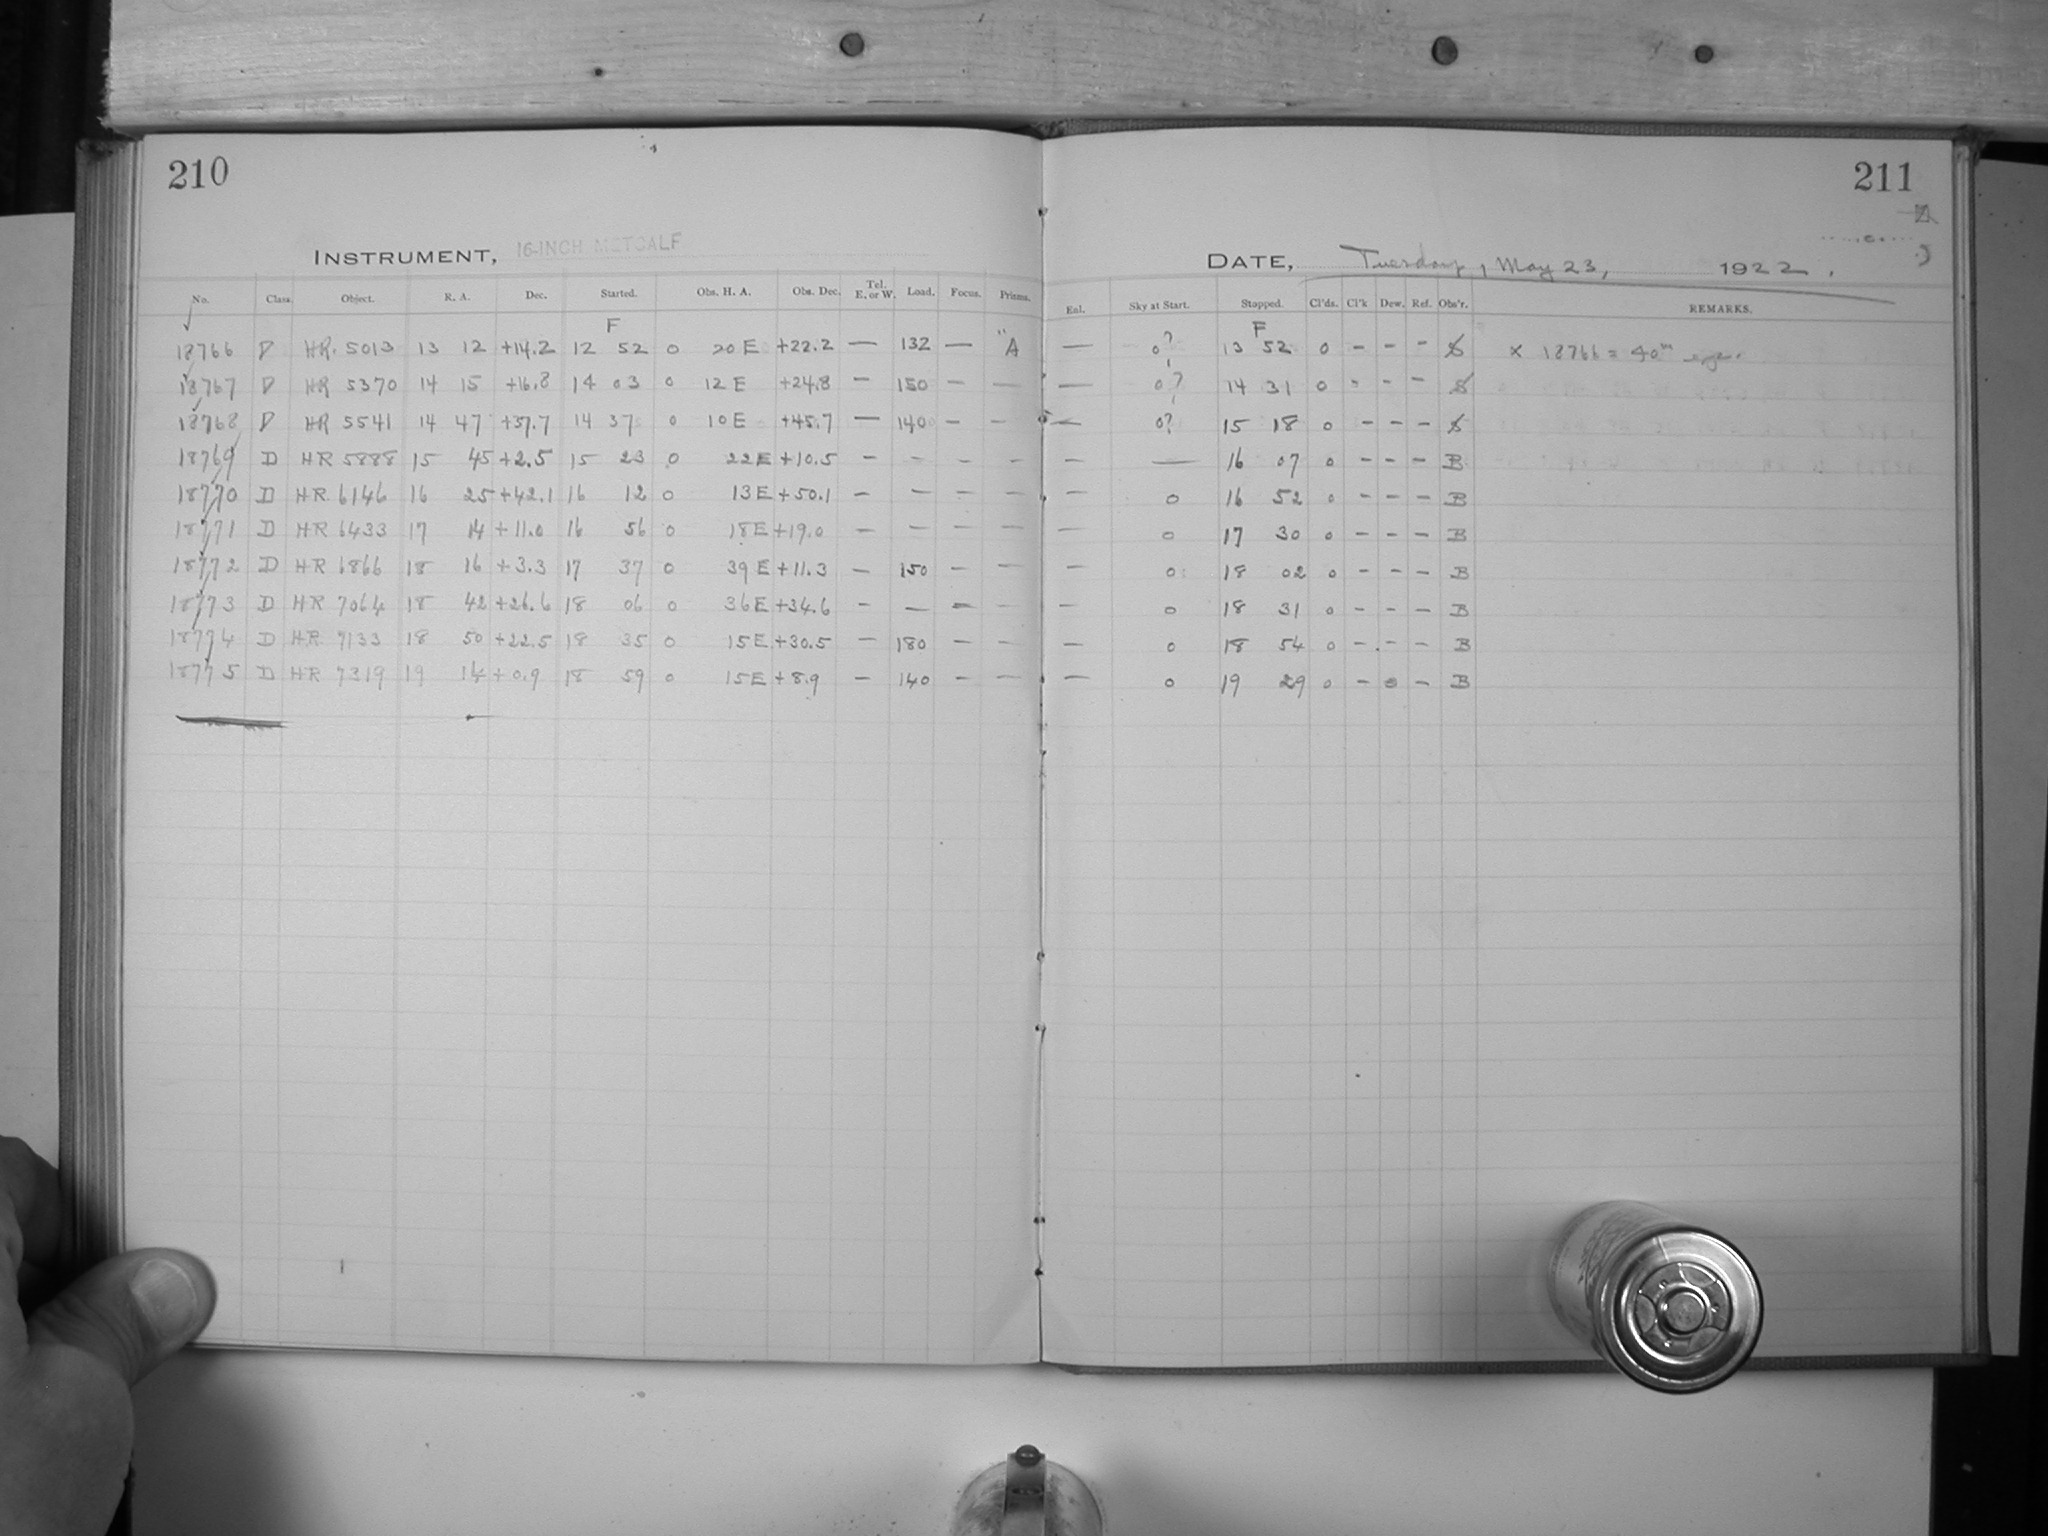 210
211
INSTRUMENT, 16-INCH METCALF
DATE, Tuesday, May 23, 1922.
No. Class. Object. R. A. Dec. Started. Obs. H. A. Obs. Dec. Tel. E. or W. Load. Focus. Prisms. Enl. Sky at Start. Stopped. Cl'ds. Cl'k Dew. Ref. Obs'r. REMARKS.
F F
18766 D HR. 5013 13 12 +14.2 12 52 0 20 E +22.2 — 132 — "A — 0? 13 52 0 - - - S × 18766 = 40m
18767 D HR 5370 14 15 +16.8 14 03 0 12 E +24.8 — 150 — — — 0? 14 31 0 - - - S
18768 D HR 5541 14 47 +37.7 14 37 0 10 E +45.7 — 140 — — — 0? 15 18 0 - - - S
18769 D HR 5888 15 45 +2.5 15 23 0 22 E +10.5 — — — — — — 16 07 0 - - - B
18770 D HR 6146 16 25 +42.1 16 12 0 13 E +50.1 — — — — — 0 16 52 0 - - - B
18771 D HR 6433 17 14 +11.0 16 56 0 18 E +19.0 — — — — — 0 17 30 0 - - - B
18772 D HR 6866 18 16 +3.3 17 37 0 39 E +11.3 — 150 — — — 0 18 02 0 - - - B
18773 D HR 7064 18 42 +26.6 18 06 0 36 E +34.6 — — — — — 0 18 31 0 - - - B
18774 D HR 7133 18 50 +22.5 18 35 0 15 E +30.5 — 180 — — — 0 18 54 0 - - - B
18775 D HR 7319 19 14 +0.9 18 59 0 15 E +8.9 — 140 — — — 0 19 29 0 - 0 - B